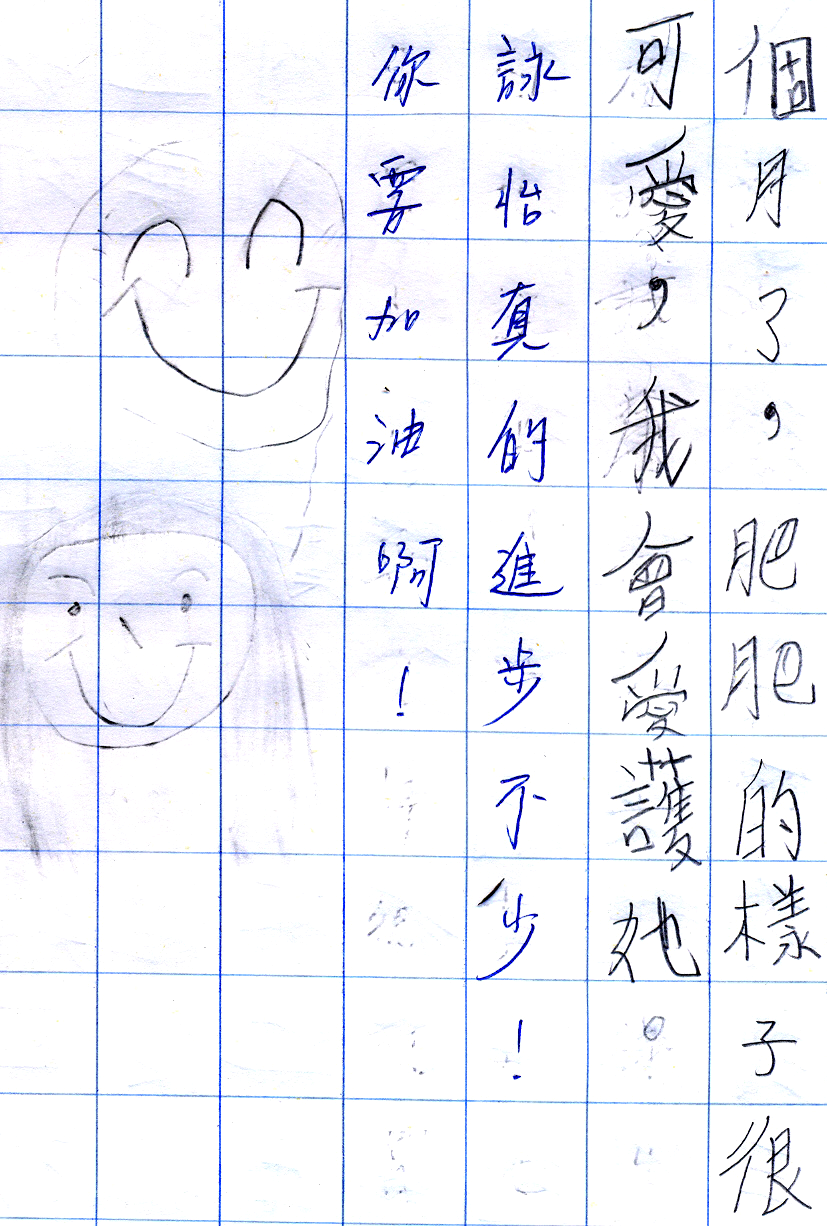 個月了，肥肥的樣子很
可愛，我會愛護她。
詠怡真的進步不少！
你要加油啊！